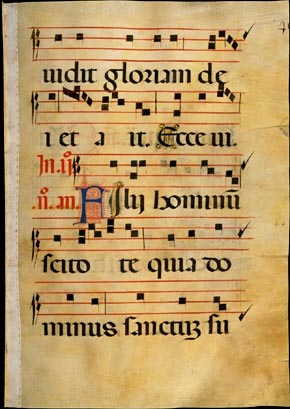 uidit gloriam de
i et a it. Ecce ui.
In .ij.º
n̄. an. Filij hominū
scito te quia do
minus sanctuz su